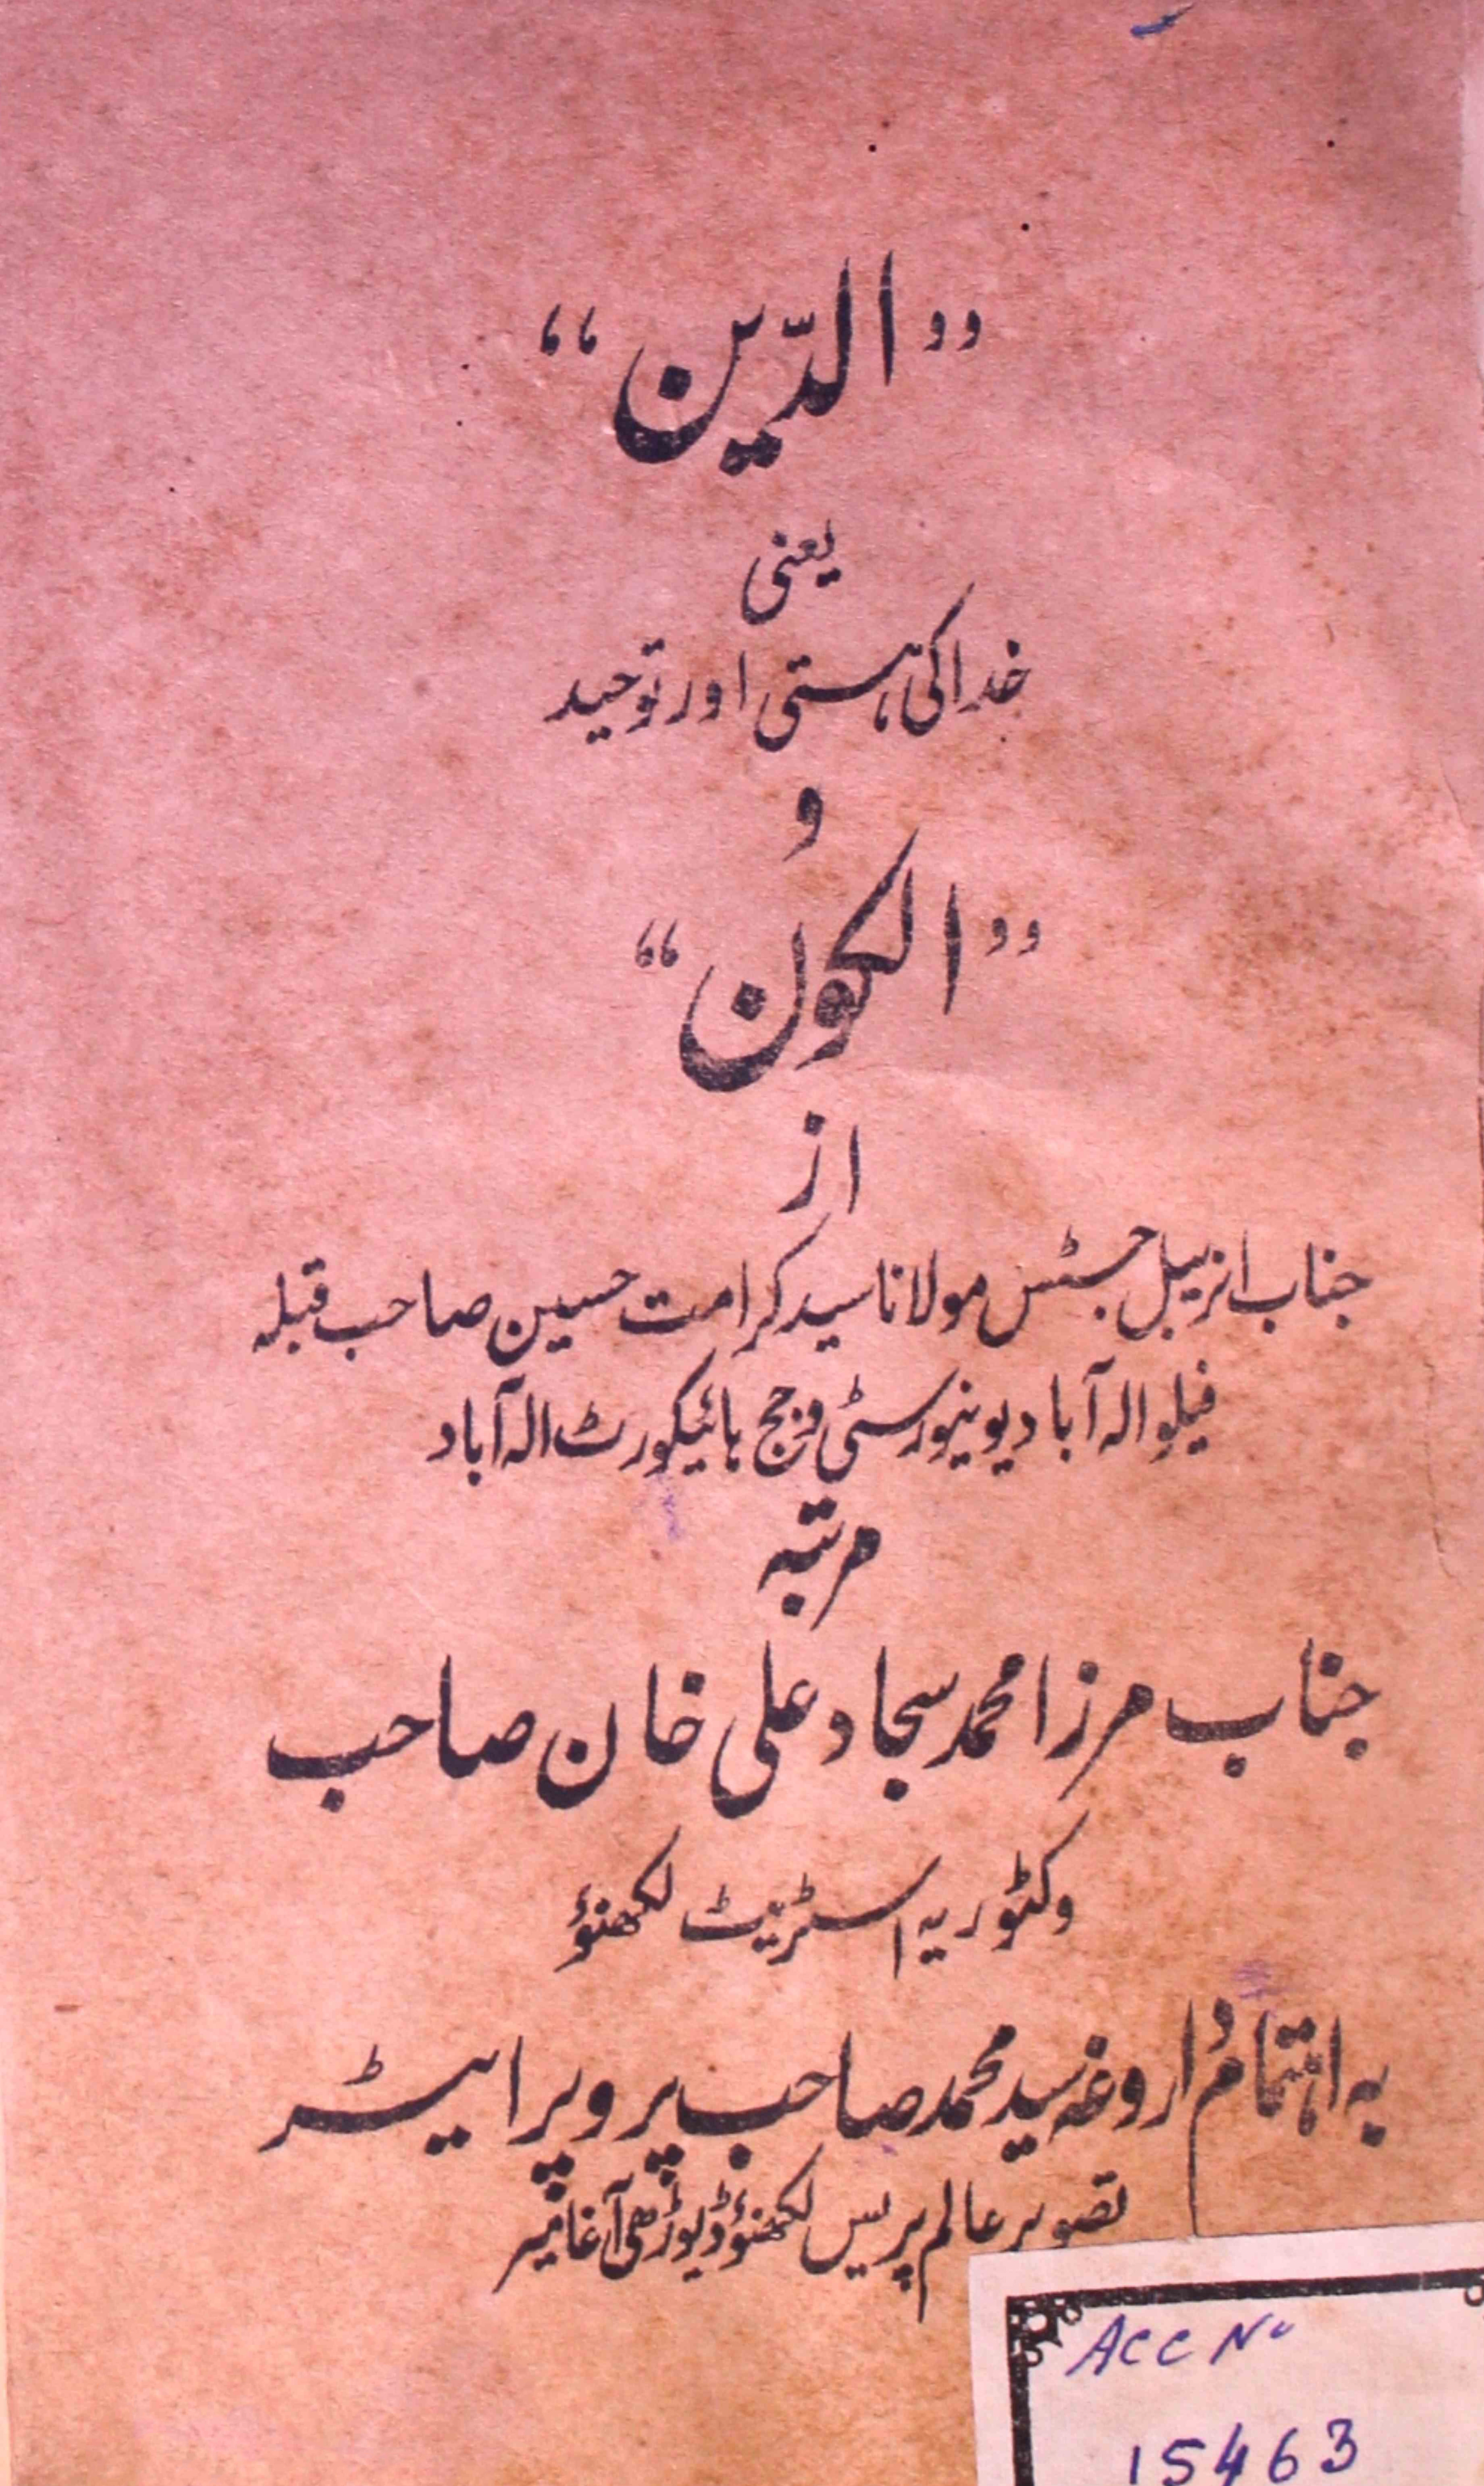 ”الدّین“
یعنی
خدا کی ہستی اور توحید
و
”الکون“
از
جناب انریبل جسٹس مولانا سید کرامت حسین صاحب قبلہ
فیلو الہ آباد یونیورسٹی و جج ہائیکورٹ الہ آباد
مرتبہ
جناب مرزا محمد سجاد علی خان صاحب
وکٹوریہ اسٹریٹ لکھنؤ
بہ اہتمام داروغہ سید محمد صاحب پروپرایٹر
تصویر عالم پریس لکھنؤ ڈیوڑھی آغا میر
Acc No
15463